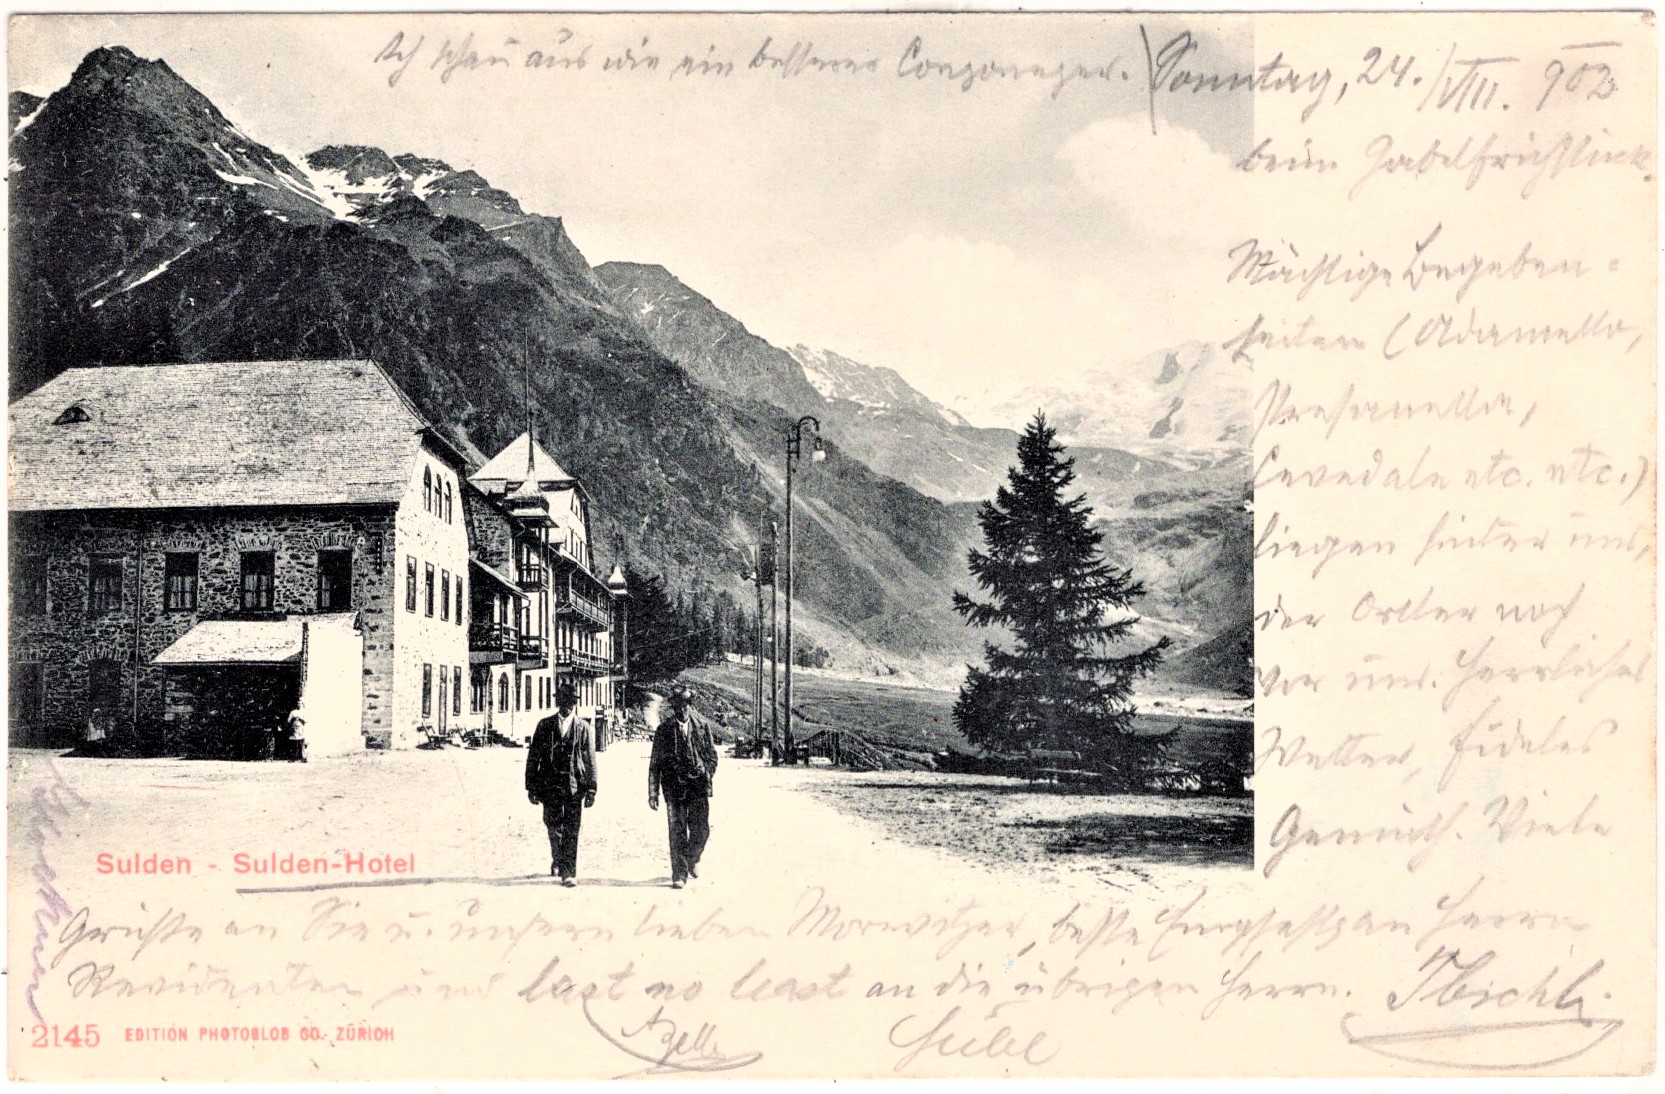 Ich schau aus wie ein besserer Congoneger.
Sonntag, 24./VIII. 902
beim Gabelfrühstück.
Mächtige Begeben-
heiten (Adamello,
Presanella,
Cevedale etc. etc.)
liegen hinter uns,
der Ortler noch
vor uns. Herrliches
Wetter, fideles
Gemüth. Viele
Grüße an Sie u. unsern lieben Morwitzer, beste Empfehlg an Herrn
Revidenten und last no least an die übrigen Herrn.
Sulden - Sulden-Hotel
2145 EDITION PHOTOGLOB CO. ZÜRICH